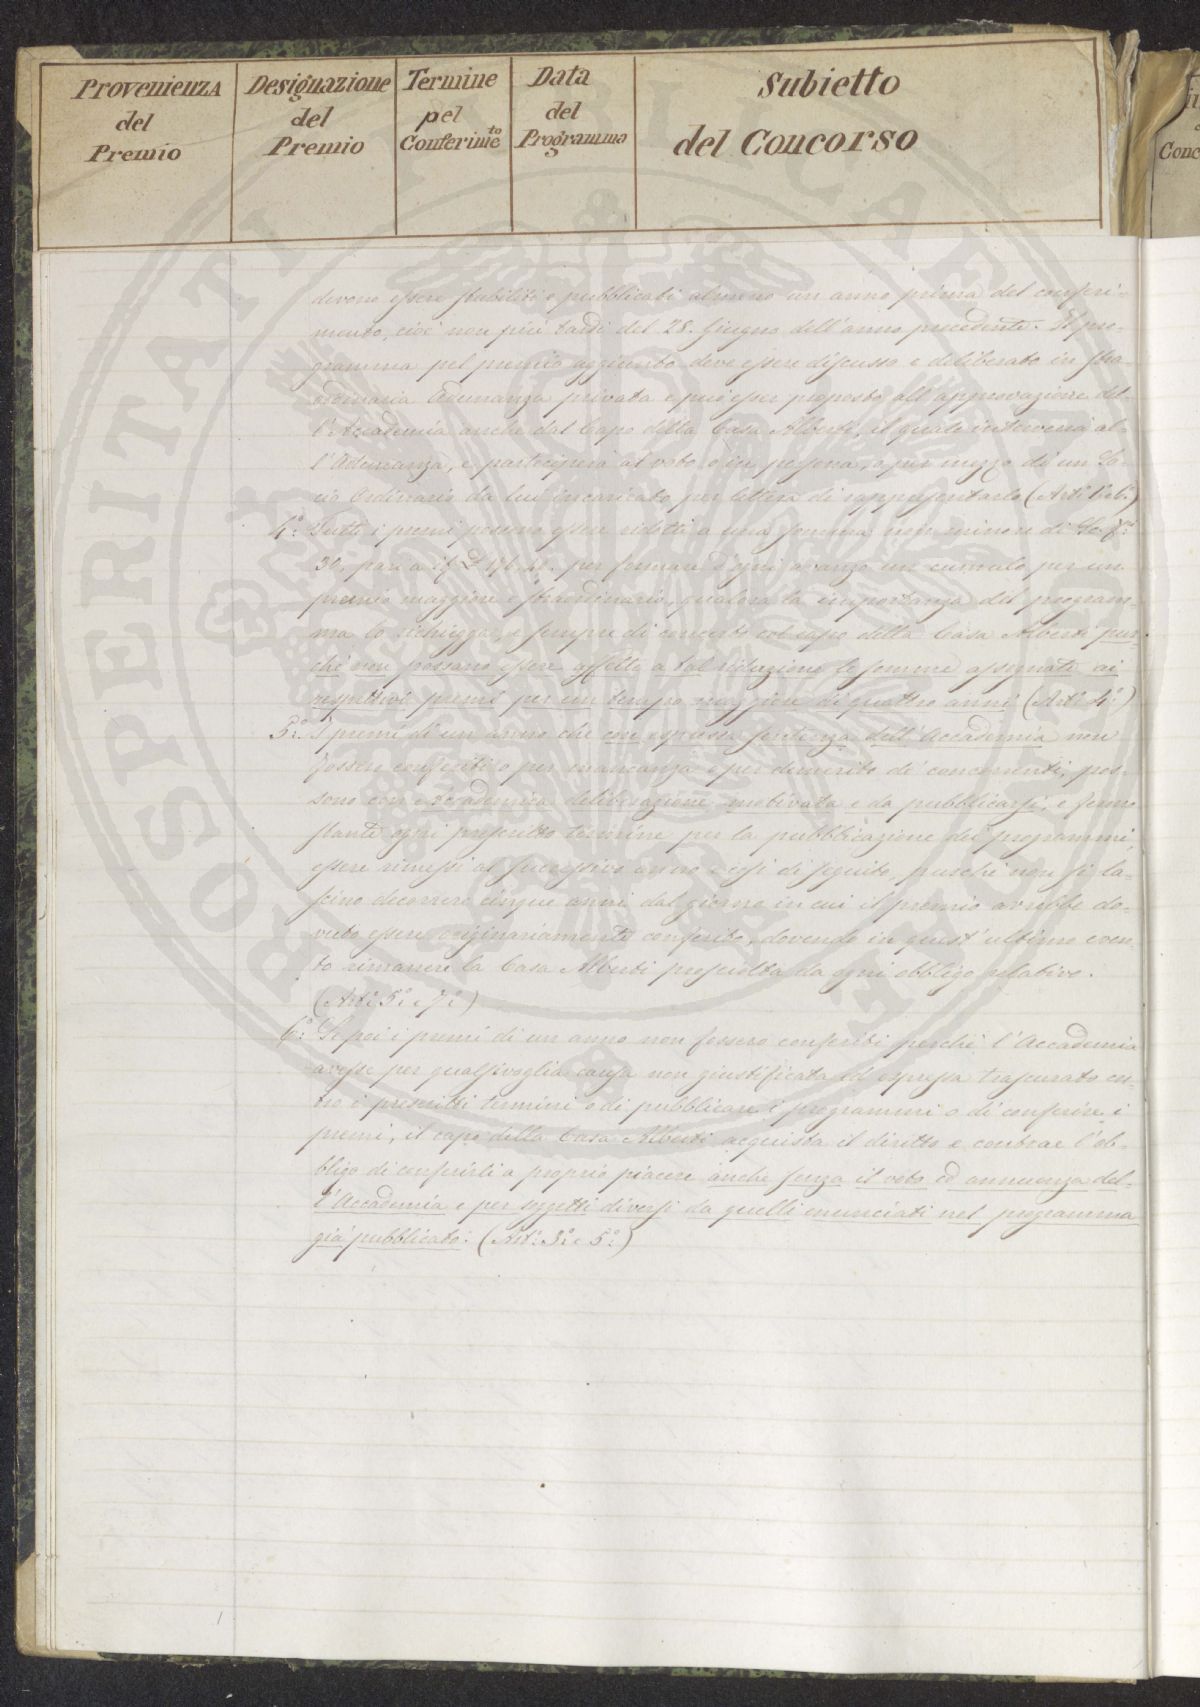 Provenienza
del
Premio
Designazione
del
Premio
Termine
pel
Conferim.to
Data
del
Programma
Subietto
del Concorso
Conc
devono essere stabiliti e pubblicati almeno un anno prima del conferi-
mento, cioè non più tardi del 28. Giugno dell'anno precedente. Il pro-
gramma pel premio aggiunto deve essere discusso e deliberato in stra-
ordinaria Adunanza privata e può esser proposto all'approvazione del-
l'Accademia anche dal Capo della Casa Alberti, il quale interverrà al-
l'Adunanza, e parteciperà al voto o in persona, o per mezzo di un So-
cio Ordinario da lui incaricato per lettera di rappresentarlo (Arti.
4.° Tutti i premi possono essere ridotti a una somma non minore di
30. pari a per formare d'ogni avanzo un cumulo per un
premio maggiore e straordinario, qualora la importanza del program-
ma lo richiegga, e sempre di concerto col capo della Casa Alberti pur-
chè non possano essere affette a tal riduzione le somme assegnate ai
respettivi premi per un tempo maggiore di quattro anni (Arti. 4.°)
5.° I premi di un anno che con espressa sentenza dell'Accademia non
fossero conferiti o per mancanza o per demerito de' concorrenti, pos-
sono con accademica deliberazione motivata e da pubblicarsi, e ferme
stante ogni prescritto termine per la pubblicazione dei programmi,
essere rimessi al successivo anno e così di seguito, purchè non si la-
scino decorrere cinque anni dal giorno in cui il premio avrebbe do-
vuto essere originariamente conferito, dovendo in quest'ultimo even-
to rimanere la Casa Alberti prosciolta da ogni obbligo relativo.
(Arti. 5.° e 7.°)
6.° Se poi i premi di un anno non fossero conferiti perchè l'Accademia
avesse per qualsivoglia causa non giustificata ed espressa trascurato en-
tro i prescritti termini o di pubblicare i programmi o di conferire i
premi, il capo della Casa Alberti acquista il diritto e contrae l'ob-
bligo di conferirli a proprio piacere anche senza il voto ed annuenza del-
l'Accademia e per soggetti diversi da quelli enunciati nel programma
già pubblicato. (Arti. 3.° e 5.°)
PROSPERITATI PUBLICAE